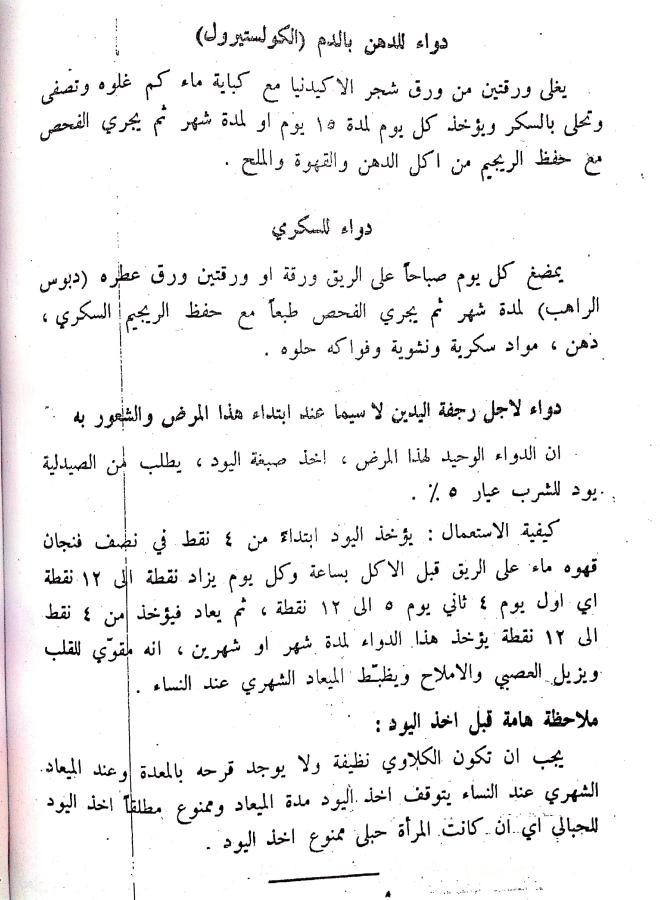 دواء للدهن بالدم (الكولستيرول)
يغلى ورقتين من ورق شجر الاكيدنيا مع كباية ماء كم غلوه وتصفى
وتحلى بالسكر ويؤخذ كل يوم لمدة ١٥ يوم او لمدة شهر ثم يجري الفحص
مع حفظ الريجيم من اكل الدهن والقهوة والملح .
دواء للسكري
يمضغ كل يوم صباحاً على الريق ورقة او ورقتين ورق عطره (دبوس
الراهب) لمدة شهر ثم يجري الفحص طبعاً مع حفظ الريجيم السكري ،
دهن ، مواد سكرية ونشوية وفواكه حلوه .
دواء لاجل رجفة اليدين لا سيما عند ابتداء هذا المرض والشعور به
ان الدواء الوحيد لهذا المرض ، اخذ صبغة اليود ، يطلب من الصيدلية
يود للشرب عيار ٥ ٪ .
كيفية الاستعمال : يؤخذ اليود ابتداءً من ٤ نقط في نصف فنجان
قهوه ماء على الريق قبل الاكل بساعة وكل يوم يزاد نقطة الى ١٢ نقطة
اي اول يوم ٤ ثاني يوم ٥ الى ١٢ نقطة ، ثم يعاد فيؤخذ من ٤ نقط
الى ١٢ نقطة يؤخذ هذا الدواء لمدة شهر او شهرين ، انه مقوّي للقلب
ويزيل العصبي والاملاح ويظبّط الميعاد الشهري عند النساء .
ملاحظة هامة قبل اخذ اليود :
يجب ان تكون الكلاوي نظيفة ولا يوجد قرحه بالمعدة وعند الميعاد
الشهري عند النساء يتوقف اخذ اليود مدة الميعاد وممنوع مطلقاً اخذ اليود
للحبالي اي ان كانت المرأة حبلى ممنوع اخذ اليود .